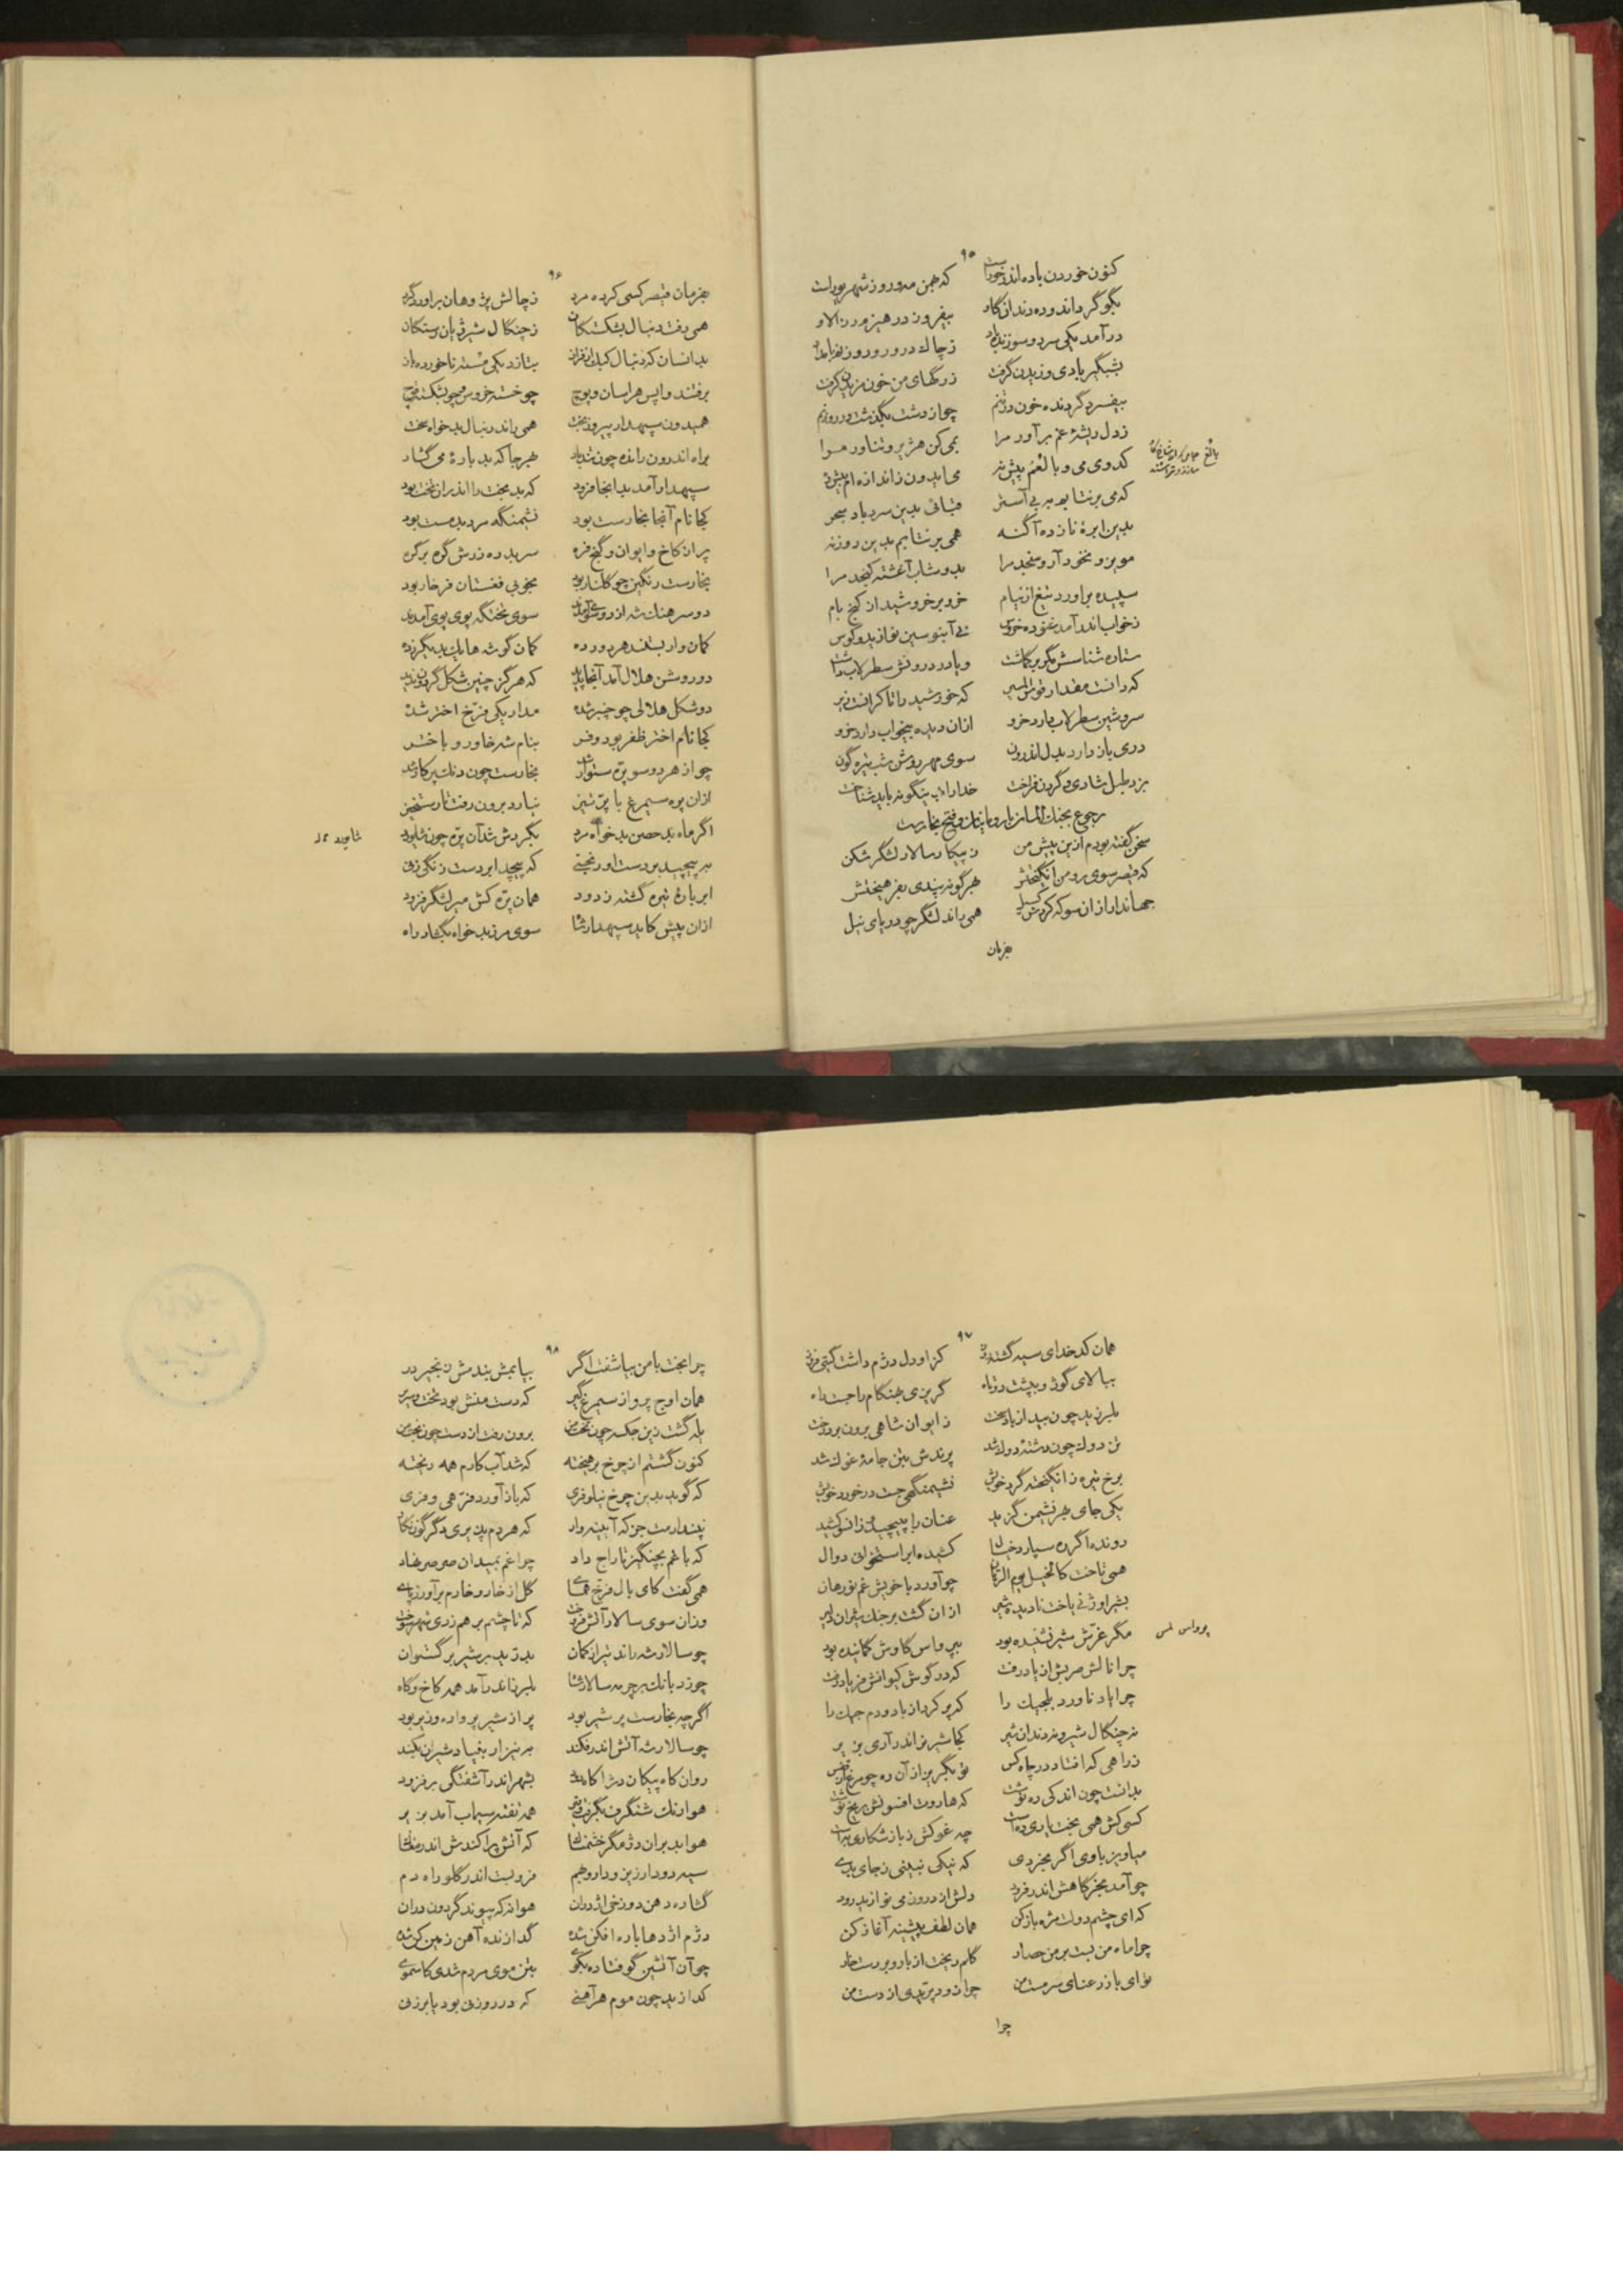 ۹۵
کنون خوردن باده اندر خوراست که جهن مه و روز شهریور است
بگو گرد اندوده دندان گاد بیفروز در هیزم
درآمد یکی سرد و سوزنده باد ز چاک در و روزن بامداد
بشبگیر بادی وزیدن گرفت ز رگهای من خون مزیدن گرفت
بیفسرد گردنده خون در تنم چو از دشت بگذشت در روزنم
ز دل ریشهٔ غم برآور مرا می کن هژبر و تناور مرا
کدوی می و بالغم پیش نه می ایدون ز اندازه ام بیش ده
بالغ
که می برنتابم مه بی آستر بدین سرد باد سحر
بدین ابرهٔ نازده آگنه همی برنتابم بدین روزنه
مویز و نخود آر و سنجد مرا بدوشاب آغشته کنجد مرا
سپیده برآورد تیغ از نیام خروس خروشید از کنج بام
ز خواب اندر آمد غنوده خروس نی آبنوسین نواز بد و کوس
ستاره شناسش مگر برگماشت و یا در درونش سطرلاب داشت
که دانست مقدار قوس المسیر که خورشید را تا کرانست زیر
سروشین سطرلاب دارد خرو ازان دیده بیخواب دارد خرو
دری باز دارد بدل اندرون سوی مهر روشن شب تیره گون
بزد طبل شادی و گردن فراخت خدا را بدینگونه باید شناخت
رجوع بجنگ المان با رومانیان و فتح بخارست
سخن گفته بودم ازین پیش من ز پیکار سالار لشگر شکن
که قیصر سوی رومن انگیختش بهرگونه پندی بفرهیختش
جهاندار ازان سو که کردش گسیل همی راند لشگر چو دریای نیل
بفرمان
۹۶
بفرمان قیصر کسی کرده مرد ز چالش پژوهان برآورد گرد
همی رفت دنبال بشکستگان ز چنگال شیر ژیان رستگان
بدانسان که دنبال کبک از فراز بتازد یکی مسته ناخورده باز
برفتند واپس هراسان و پوچ چو خسته خروس و چو بشکسته قوچ
همیدون سپهدار پیروز بخت همی راند دنبال بدخواه سخت
براه اندرون رانده چون تندباد بهر جا که بد بارهٔ می گشاد
سپهدار آمد بدانجا فرود که بدبخت را اندران تخت بود
کجا نام آنجا بخارست بود نشیمنگه مرد بدمست بود
پر از کاخ و ایوان و گنج و فره سر بدره زرش گره بر گره
بخارست رنگین چو گلنار بود بخوبی فغستان فرخار بود
دو سرهنگ شه از دو سوی آمدند سوی تختگه پوی پوی آمدند
کمان وار بستند هر دو رده کمان گوشه ها یک بدیگر زده
دو روشن هلال آمد آنجا پدید که هرگز چنین شکل گردون ندید
دو شکل هلالی چو چنبر شده مدار یکی فرخ اختر شده
کجا نام اختر ظفر بود و فر بنام شه خاور و باختر
چو از هر دو سو پره ستوار شد بخارست چون دنگ پرگار شد
ازان پره سیمرغ با پر تیز نیارد برون رفت تا رستخیز
اگر ماه بد حصن بدخواه مرد بگردش شد آن پره چون شابورد
شابورد
بپیچید بر دست اورنجنی که پیچد ابر دست زنگی زنی
ابر بارهٔ تیره گشته ز دود همان پره کش میر لشگر فزود
ازان پیش کاید سپهدار شاه سوی مرز بدخواه بگشاد راه
۹۷
همان کدخدای سیه گشته روز کز او دل دژم داشت گیتی فروز
ببالای گوژ و بپشت دوتاه گریزی بهنگام را جست راه
بلرزید چون بید از باد سخت ز ایوان شاهی برون برد رخت
تن دوک چون رشتهٔ دوک شد پرندش بتن جامهٔ غوک شد
برخ تیره ز انگیخته گرد خویش نشیمنگهی جست درخورد خویش
یکی جای بهر نشیمن گزید عنان را بپیچید و زانسو کشید
رونده اگر ره سپارد خیال کشیده ابر استخوان دوال
همی تاخت کالخیل یوم الرهان چو آورد با خویش غم نورهان
بشیر اوژنی باخت نادیده شیر ازان گشت بر جنگ شیران دلیر
مگر غرّش شیر نشنیده بود بپرواس کاوش کمانیده بود
پرواس لمس
چرا نالش مریش از یاد رفت که در گوش کیوانش فریاد رفت
چرا یاد ناورد بلجیک را که پر کرد از باد و دم جیک را
نه چنگال شیر و نه دندان شیر کجا شیر نر اندر آری بزیر
ز راهی که افتاد در چاه کس تو بگریز از آن ره چو مرغ از قفس
بدانست چون اندکی ره نوشت که هاروت افسونش بر یخ نوشت
کسی کش همی بخت یاری ده است چه غوکش زباز شکاری به است
میاویز با وی اگر بخردی که نیکی نبینی ز جای بدی
چو آمد بخرگاهش اندر فرود دلش از درون می نوازید رود
که ای چشم دولت مژه باز کن همان لطف پیشینه آغاز کن
چرا ماه من بست بر من حصار گلم ریخت از بار و بر رست خار
تو ای باز رعنای سرمست من چرا زود پرّیدی از دست من
چرا
۹۸
چرا بخت با من بیاشفت اگر بیا بمش بندمش زنجیر در
همان اوج پرواز سیمرغ گیر که دست منش بود تخت و سریر
یله گشت زین جلسه چون تخت من برون رفت از دست چون بخت من
کنون گشتم از چرخ برهیخته که شد آب کارم همه ریخته
که گوید بدین چرخ نیلوفری که باز آورد فرّهی و فری
نپندارمت جز که آیینه وار که هر دم پذیری دگرگون نگار
که با غم بچنگیز تاراج داد چرا غم بمیدان صرصر نهاد
همی گفت کای بال فرخ همای گل از خار و خارم برآور ز پای
وزان سوی سالار آلش فروخت که تا چشم بر هم زدی شهر سوخت
چو سالار شه راند تیر از کمان بدرّید بر شیر برگستوان
چو زد بانگ بر چرمه سالار شاه بلرزاند در آمد همه کاخ و گاه
اگرچه بخارست پر شیر بود پر از شیر پرواره و زیر بود
چو سالار شه آتش اندر فکند به نیزار بغیاد شیران فکند
روان کاه پیکان دژ آکاه شد بشهر اندر آشفتگی برفزود
هوا رنگ شنگرف بگرفت و قیر همه تفته سیماب آمد بزیر
هوا بد بران دژ مگر خشمناک که آتش پراکندش اندر مغاک
سیه دود ازین و دارو بهم فرو بست اندر گلو راه دم
گشاده دهن دوزخی اژدران هوا نه که پیوند گردون دران
دژم اژدها باره افکن شده گدازنده آهن زمین کن شده
چو آن آتشین گو فتاده بگو بتن موی مردم شدی کاسموی
گدازید چون موم هر آهنی که در روزنی بود یا برزنی